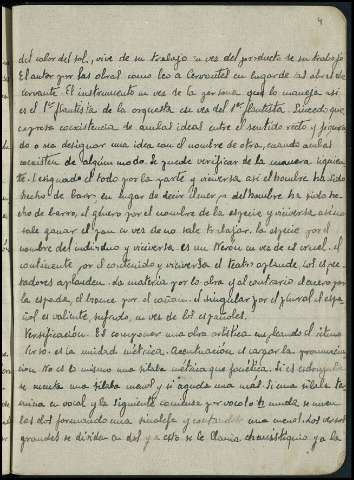 4
del calor del sol, vive de su trabajo en vez del producto de su trabajo
El autor por las obras como leo a Cervantes en lugar de las obras de
cervante. El instrumento en ves de la persona que lo maneja asi
es el 1er flautista de la orquesta en ves del 1er flautista. Sinecdoque,
expresa coexistencia de ambas ideas entre el sentido recto y figura
do o sea designar una idea con el nombre de otra, cuando ambas
coexisten de algun modo. Se puede verificar de la manera siguien
te. Designado el todo por la parte y viceversa asi el hombre ha sido
hecho de barro, en lugar de decir el cuerpo del hombre ha sido he
cho de barro, el género por el nombre de la especie y viceversa asi no
vale ganar el pan en ves de no vale trabajar. la especie por el
nombre del individuo y viceversa es un Neron en ves de es cruel. el
continente por el contenido y viceversa el teatro aplaude los espec
tadores aplauden. La materia por la obra y al contrario el acero por
la espada, el bronce por el cañon. el singular por el plural el espa
ñol es valiente, sufrido, en ves de los españoles.
Versificación. Es componer una obra artistica empleando el ritmo
Verso. es la unidad métrica. Acentuacion es cargar la pronuncia
cion No es lo mismo una silaba métrica que fonética. Si es esdrujula
se cuenta una silaba menos y si aguda una más. Si una silaba ter
mina en vocal y la siguiente comienza por vocal o h muda se unen
las dos formando una sinalefa y contandose una menos. Los versos
grandes se dividen en dos y a esto se le llama hemistiquio y a la